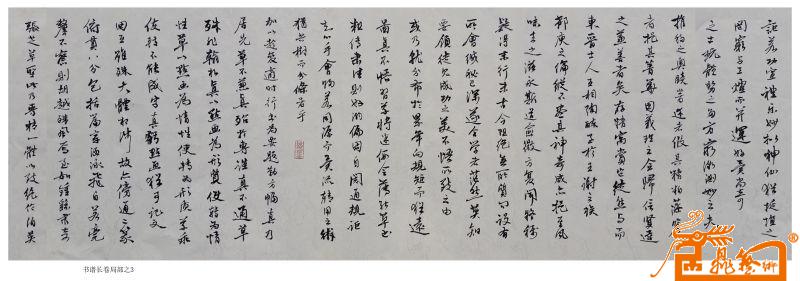 詎若功宣禮樂妙擬神仙猶埏埴之
罔窮與工爐而並運好異尚奇
之士玩體勢之多方窮微測妙之夫得
推移之奧賾著述者假其糟粕藻鑒
者挹其菁華固義理之會歸信賢達
之兼善者矣存精寓賞豈徒然與而
東晉士人互相陶淬至於王謝之族
郗庾之倫縱不盡其神奇咸亦挹其風
味去之滋永斯道愈微方復聞疑稱
疑得末行末古今阻絕無所質問設有
所會緘秘已深遂令學者茫然莫知
領要徒見成功之美不悟所致之由
或乃就分布於累年向規矩而猶遠
圖真不悟習草將迷假令薄能草書
粗傳隸法則好溺偏固自閡通規詎
知心手會歸若同源而異派轉用之術
猶共樹而分條者乎
加以趨變適時行書為要題勒方幅真乃
居先草不兼真殆於專謹真不通草
殊非翰札真以點畫為形質使轉為情
性草以點畫為情性使轉為形質草乖
使轉不能成字真虧點畫猶可記文
回互雖殊大體相涉故亦傍通二篆
俯貫八分包括篇章涵泳飛白若毫
釐不察則胡越殊風者焉至如鍾繇隸奇
張芝草聖此乃專精一體以致絕倫伯英
书谱长卷局部之3